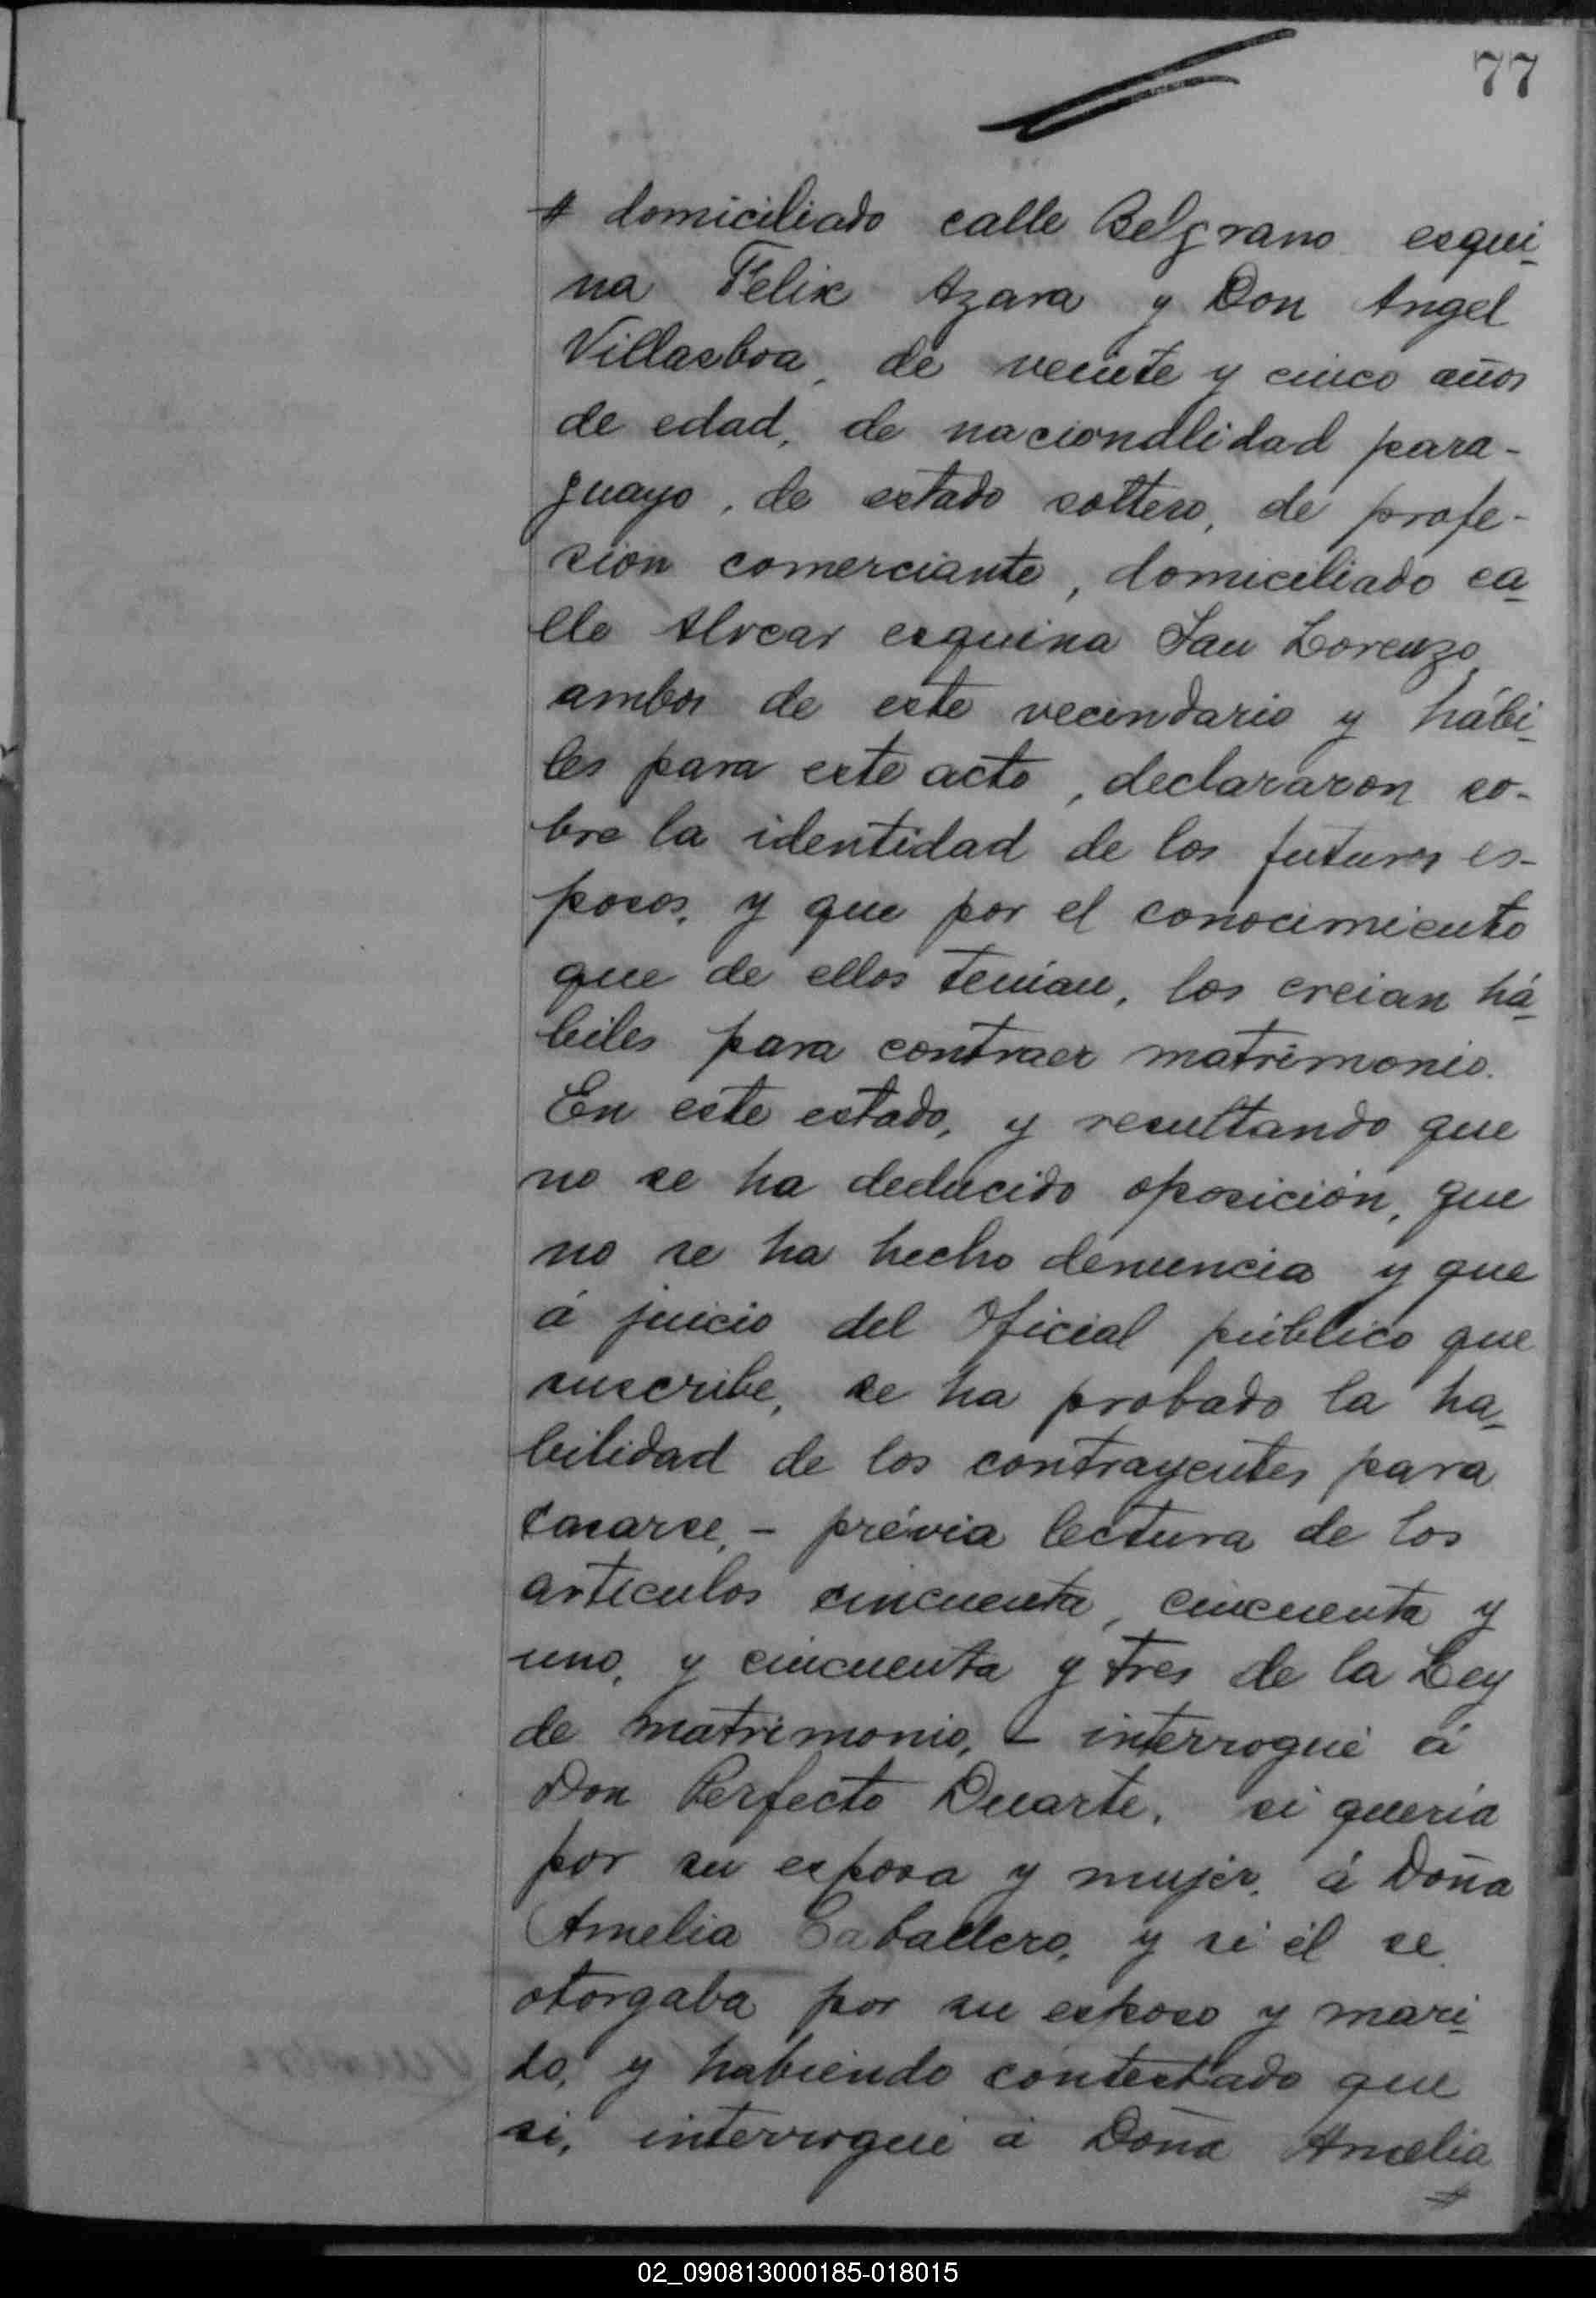 77
# domiciliado calle Belgrano esqui-
na Felix Azara y Don Angel
Villasboa, de veinte y cinco años
de edad, de nacionalidad para-
guayo, de estado soltero, de profe-
sion comerciante, domiciliado ca-
lle Alvear esquina San Lorenzo,
ambos de este vecindario y hábi-
les para este acto, declararon so-
bre la identidad de los futuros es-
posos, y que por el conocimiento
que de ellos tenían, los creian há-
biles para contraer matrimonio.
En este estado, y resultando que
no se ha deducido oposición, que
no se ha hecho denuncia y que
á juicio del Oficial público que
suscribe, se ha probado la ha-
bilidad de los contrayentes para
casarse, - prévia lectura de los
artículos cincuenta, cincuenta y
uno, y cincuenta y tres de la Ley
de matrimonio, - interrogué á
Don Perfecto Duarte, si quería
por su esposa y mujer, á Doña
Amelia Caballero, y si él se
otorgaba por su esposo y mari-
do, y habiendo contestado que
si, interrogué á Doña Amelia
#
02_090813000185-018015